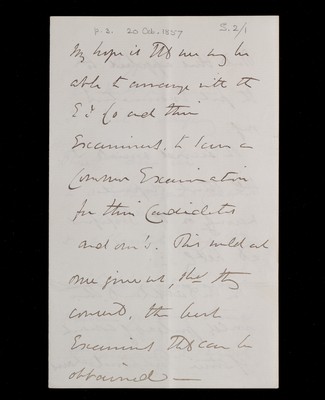 p. 2. 20 Oct. 1857 S. 2/1
My hope is that we may be
able to arrange with the
E I Co and their
Examiners, to have a
Common Examination
for their Candidates
and our's. This would at
once give us, they
consent, the best
Examiners that can be
obtained —